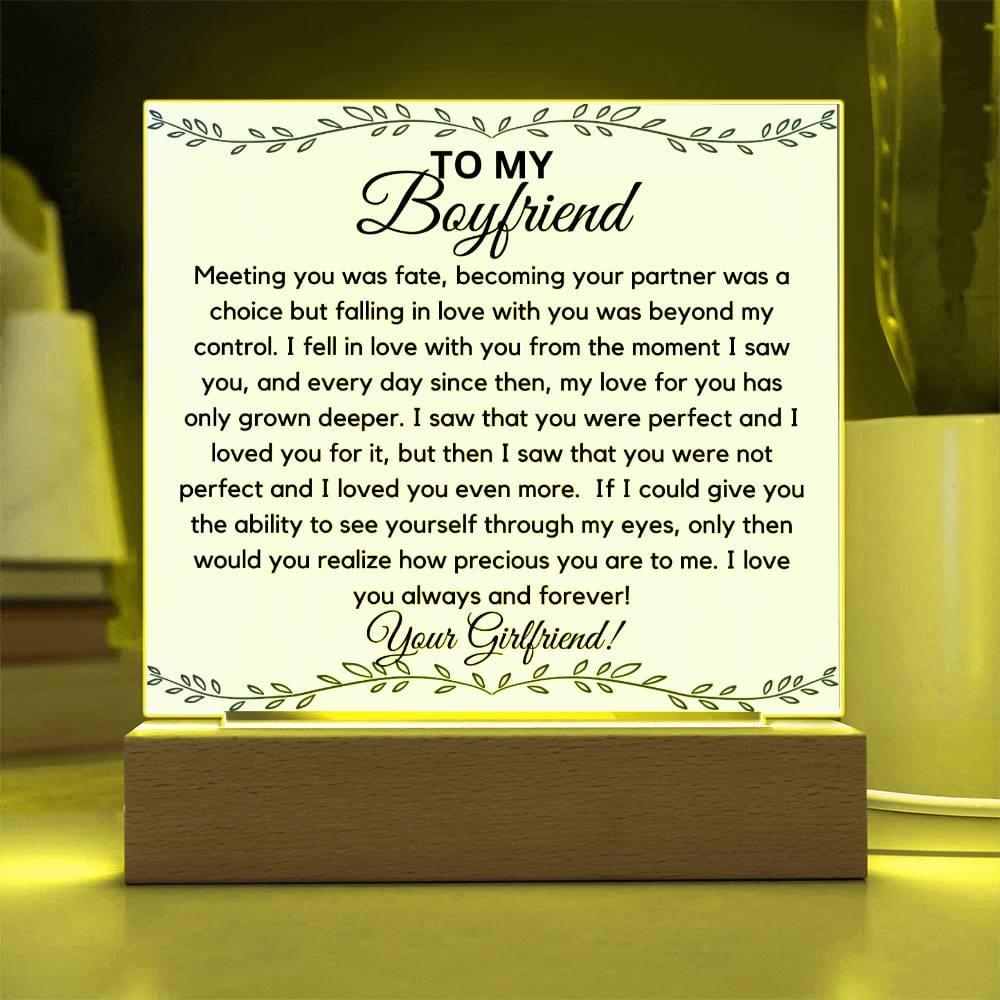 TO MY
Boyfriend
Meeting you was fate, becoming your partner was a
choice but falling in love with you was beyond my
control. I fell in love with you from the moment I saw
you, and every day since then, my love for you has
only grown deeper. I saw that you were perfect and I
loved you for it, but then I saw that you were not
perfect and I loved you even more.  If I could give you
the ability to see yourself through my eyes, only then
would you realize how precious you are to me. I love
you always and forever!
Your Girlfriend!